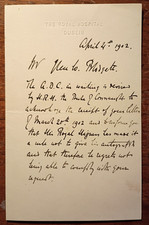 THE ROYAL HOSPITAL
DUBLIN
April 4th 1902.
The A.D.C. in waiting
by H.R.H. the Duke of Connaught to
acknowledge the receipt of your letter
of March 20th 1902 and to inform you
that His Royal Highness has made it
a rule not to give his autograph
and that therefore he regrets not
being able to comply with your
request.